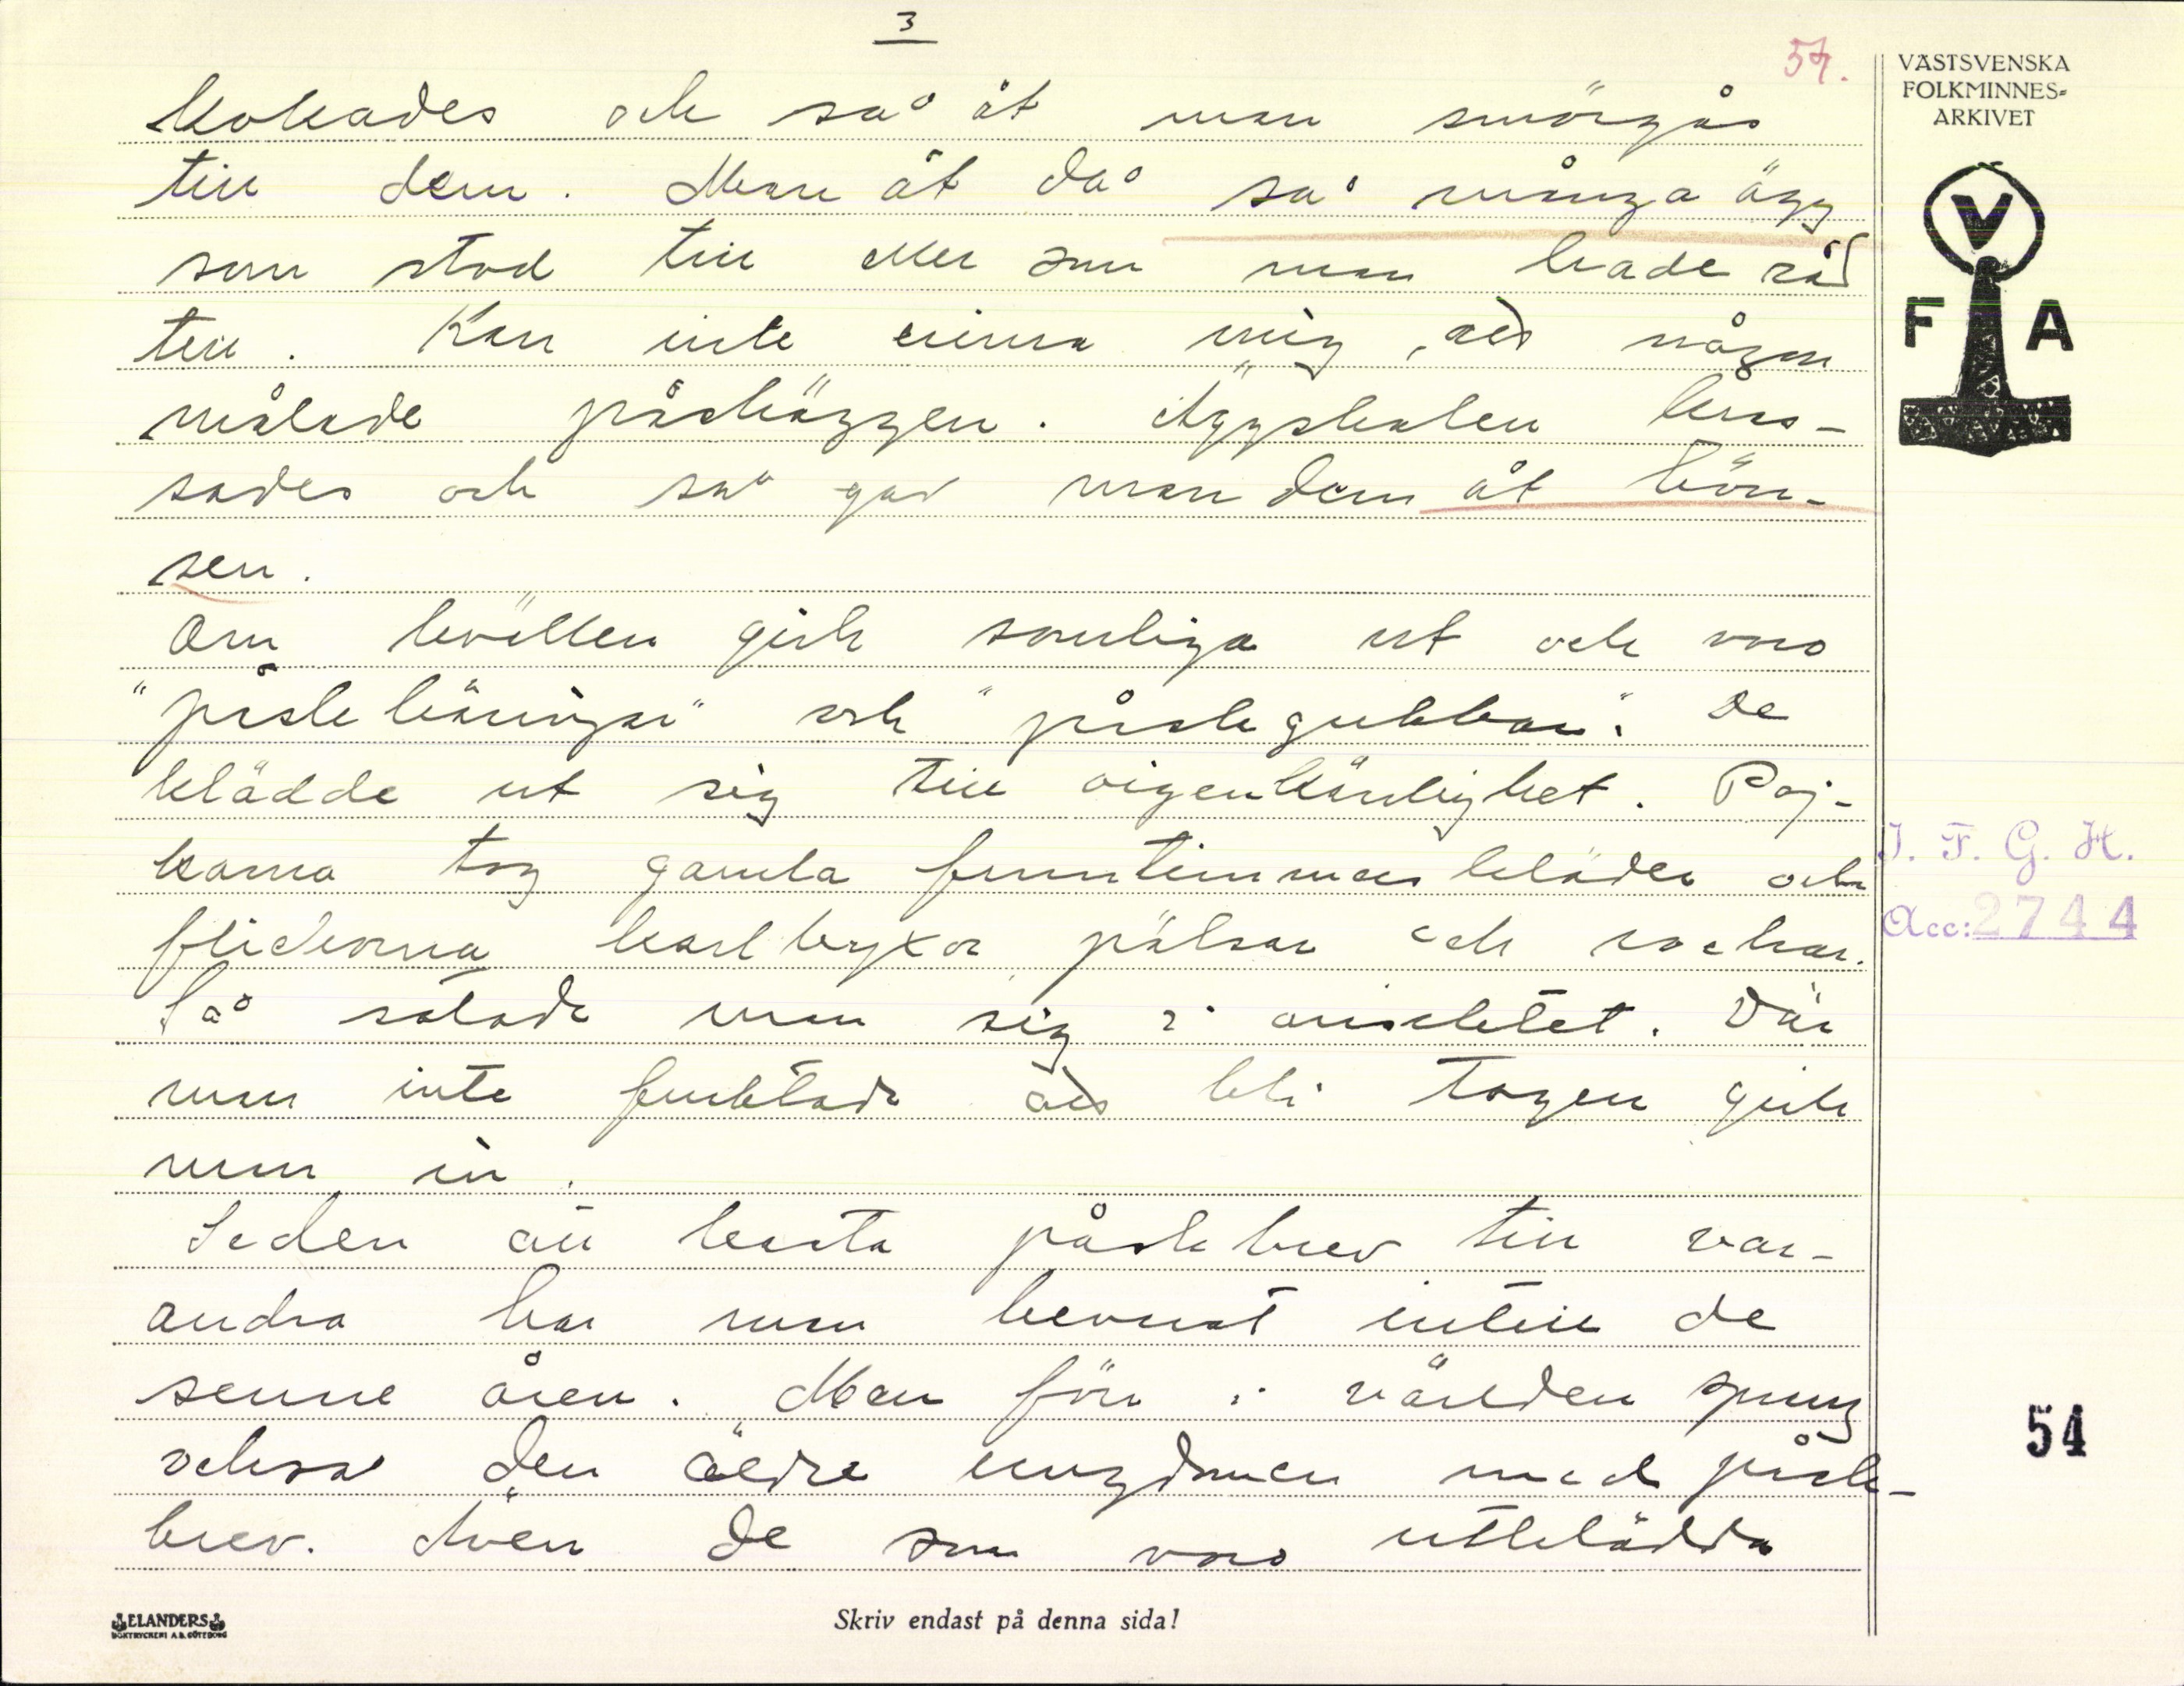 3
57.
VÄSTSVENSKA
FOLKMINNES=
ARKIVET
V
F A
kokades och så åt man smörgås
till dem. Man åt då så många ägg
som stod till eller som man hade råd
till. Kan inte erinra mig, att någon
målade påskäggen. Äggskalen kros-
sades och så gav man dem åt hön-
sen.
Om kvällen gick somliga ut och voro
"påskkäringar" och "påskgubbar". De
klädde ut sig till oigenkänlighet. Poj-
karna tog gamla fruntimmerskläder och
flickorna karlbyxor pälsar och rockar.
Så sotade man sig i ansiktet. Där
man inte fruktade att bli tagen gick
man in.
Seden att kasta påskbrev till var-
andra har man bevarat intill de
senare åren. Men förr i världen sprang
också den äldre ungdomen med påsk-
brev. Även de som voro utklädda
I. F. G. H.
Acc: 2744
54
ELANDERS
BOKTRYCKERI A.B. GÖTEBORG
Skriv endast på denna sida!